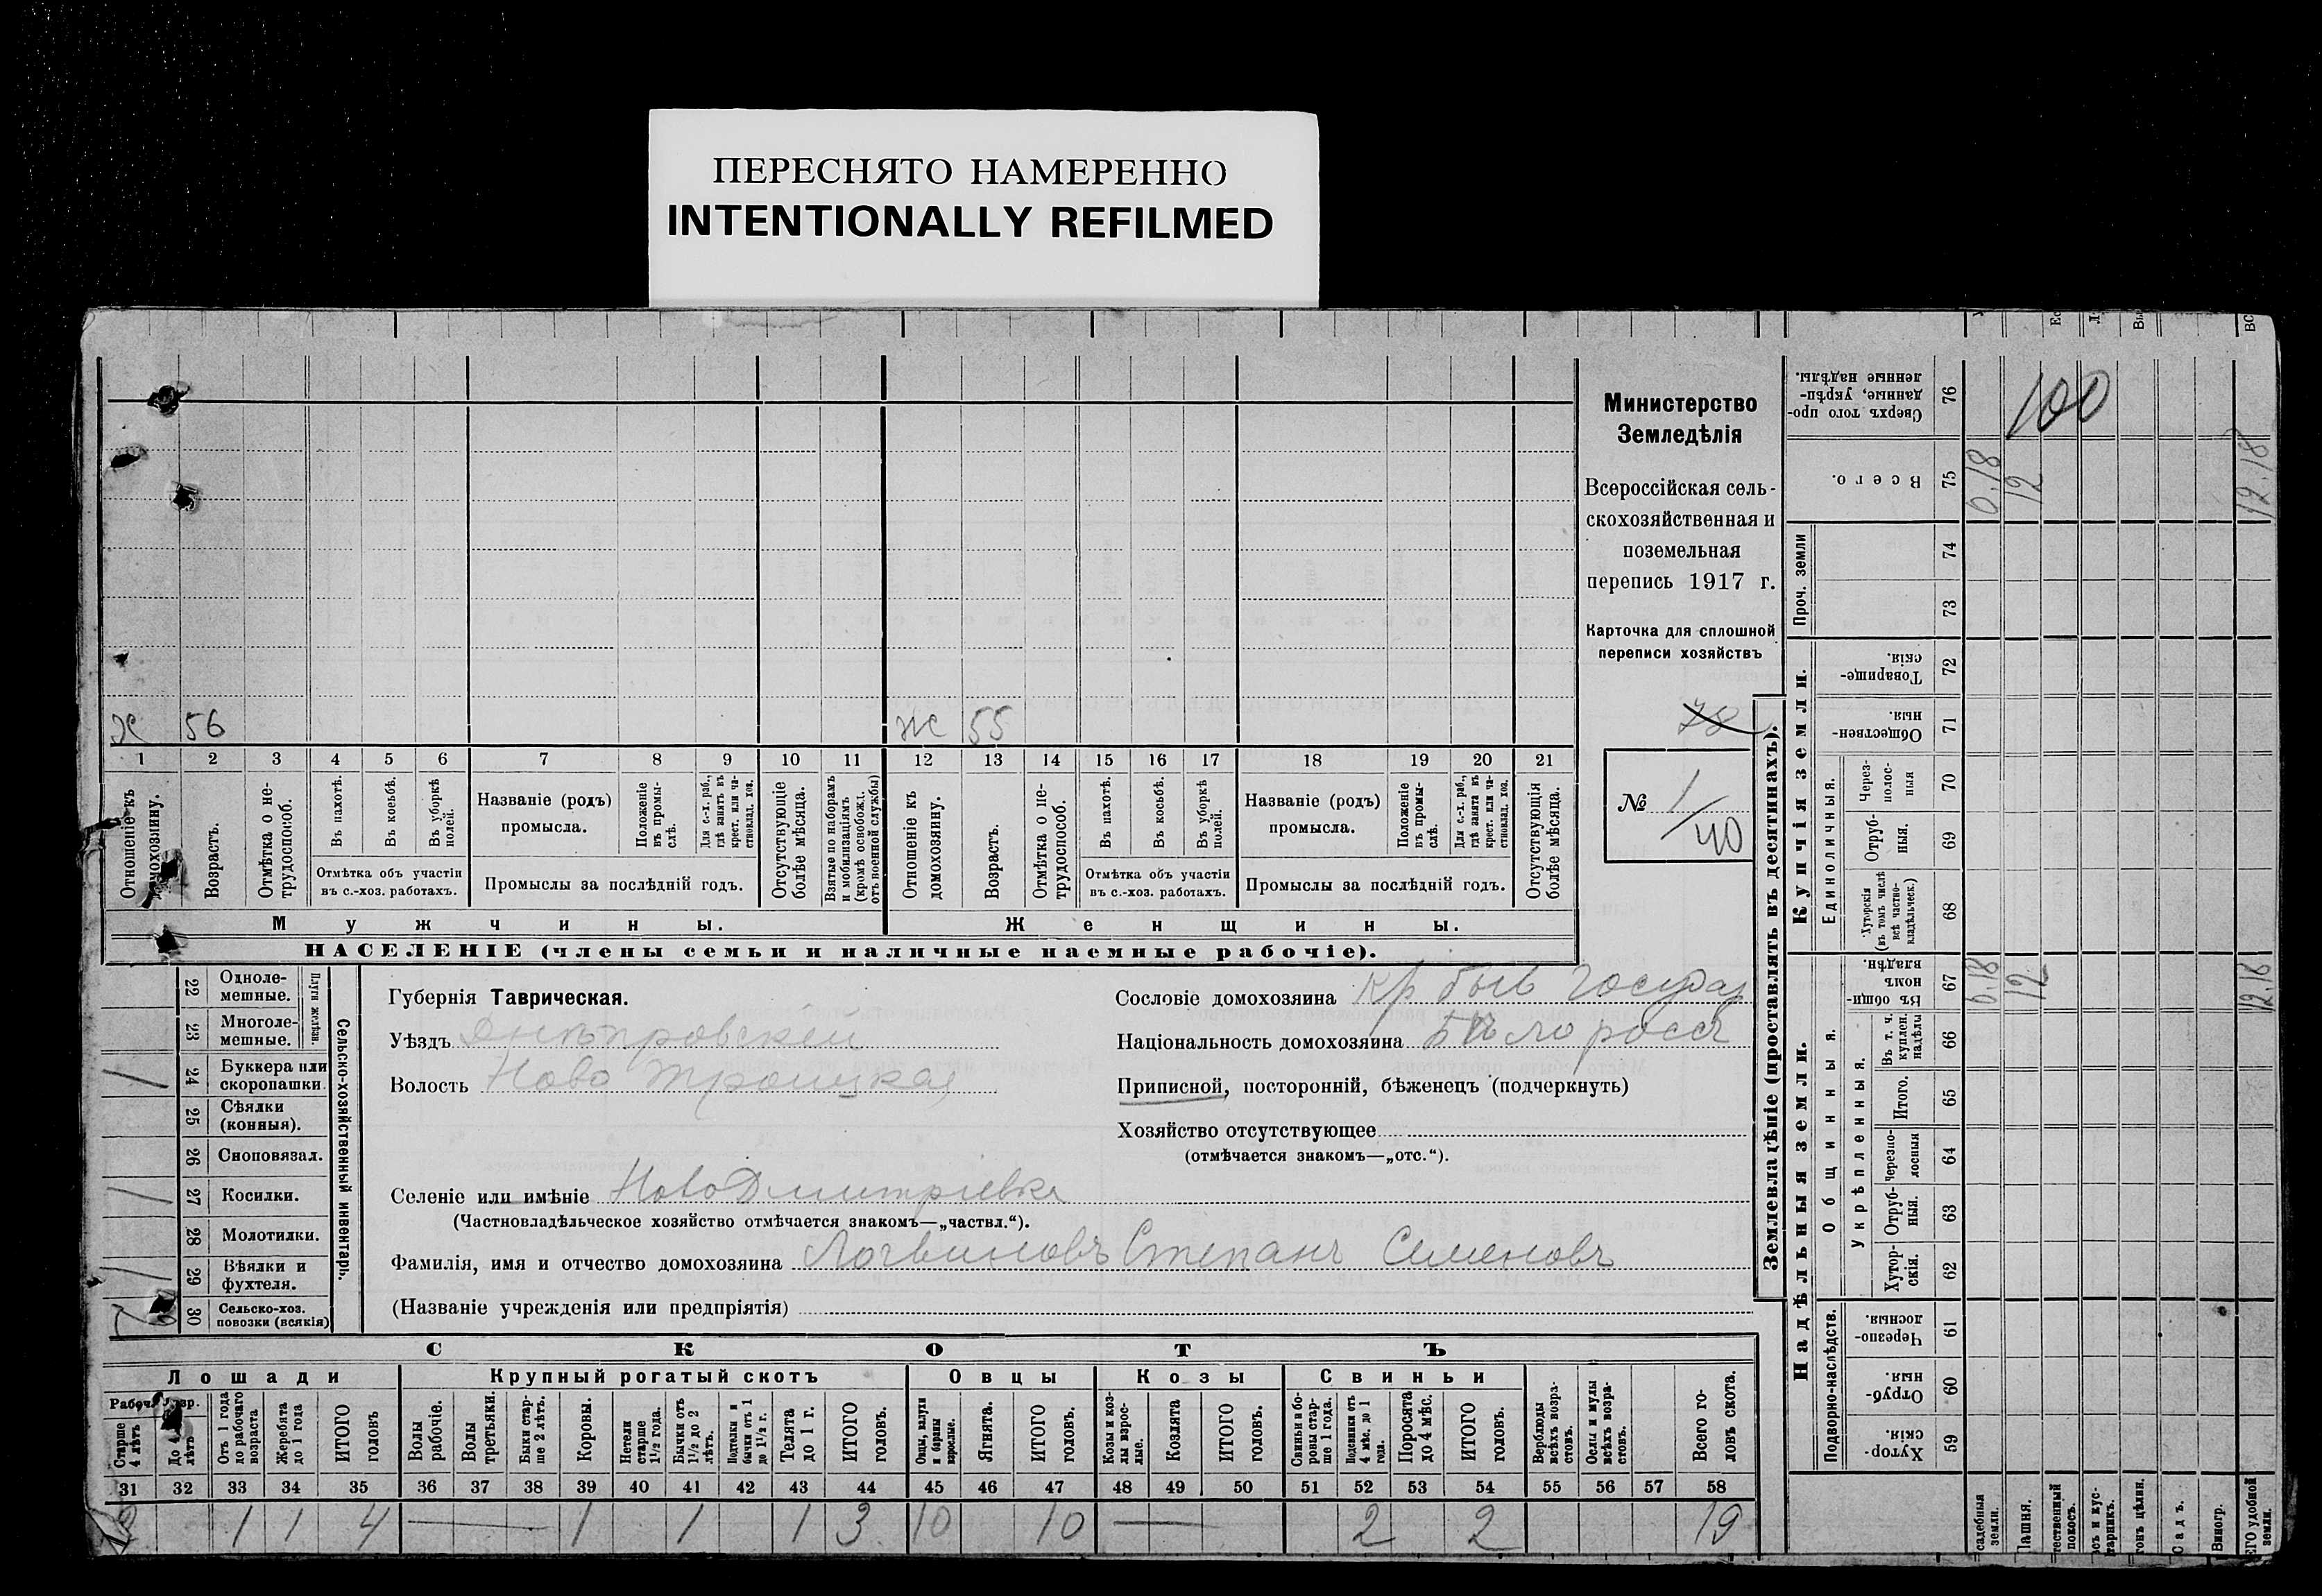 ПЕРЕСНЯТО НАМЕРЕННО
INTENTIONALLY REFILMED
Министерство
Земледѣлія
Всероссійская сель-
скохозяйственная и
поземельная
перепись 1917 г.
Карточка для сплошной
переписи хозяйствъ
78
№ 1/40
х 56
ж 55
1 2 3 4 5 6 7 8 9 10 11 12 13 14 15 16 17 18 19 20 21
Отношеніе къ домохозяину.
Возрастъ.
Отмѣтка о не-трудоспособ.
Въ пахотѣ.
Въ косьбѣ.
Въ уборкѣ полей.
Отмѣтка объ участіи
въ с.-хоз. работахъ.
Названіе (родъ)
промысла.
Положеніе въ промы-слѣ.
Для с.-х. раб., гдѣ занятъ въ крест. или ча-стновлад. хоз.
Промыслы за послѣдній годъ.
Отсутствующіе болѣе мѣсяца.
Взятые по наборамъ и мобилизаціямъ (кромѣ освобожд. отъ военной службы)
Отношеніе къ домохозяину.
Возрастъ.
Отмѣтка о не-трудоспособ.
Въ пахотѣ.
Въ косьбѣ.
Въ уборкѣ полей.
Отмѣтка объ участіи
въ с.-хоз. работахъ.
Названіе (родъ)
промысла.
Положеніе въ промы-слѣ.
Для с.-х. раб., гдѣ занята въ крест. или ча-стновлад. хоз.
Промыслы за послѣдній годъ.
Отсутствующія болѣе мѣсяца.
Мужчины.
Женщины.
НАСЕЛЕНІЕ (члены семьи и наличные наемные рабочіе).
22 Одноле-мешные.
23 Многоле-мешные.
Плуги желѣзн.
24 Буккера или скоропашки.
25 Сѣялки (конныя).
26 Сноповязал.
27 Косилки.
28 Молотилки.
29 Вѣялки и фухтеля.
30 Сельско-хоз. повозки (всякія)
Сельско-хозяйственный инвентарь.
Губернія Таврическая.
Уѣздъ Днѣпровскій
Волость Ново Троицкая
Сословіе домохозяина кр быв государ
Національность домохозяина Бѣлоросъ
Приписной, посторонній, бѣженецъ (подчеркнуть)
Хозяйство отсутствующее
(отмѣчается знакомъ—„отс.“).
Селеніе или имѣніе НовоДмитріевка
(Частновладѣльческое хозяйство отмѣчается знакомъ—„частвл.“).
Фамилія, имя и отчество домохозяина Логвиновъ Степанъ Семеновъ
(Названіе учрежденія или предпріятія)
СКОТЪ
Лошади Крупный рогатый скотъ Овцы Козы Свиньи
Старше 4 лѣтъ
Отъ 1 года до рабочаго возраста
Жеребята до 1 года
ИТОГО головъ
Волы рабочіе.
Волы третьяки.
Быки стар-ше 2 лѣтъ.
Коровы.
Нетели старше 1½ года.
Бычки отъ 1½ до 2 лѣтъ.
Подтелки и бычки отъ 1 до 1½ г.
Телята до 1 г.
ИТОГО головъ.
Овцы, валухи и бараны взрослые.
Ягнята.
ИТОГО головъ.
Козы и коз-лы взрос-лые.
Козлята
ИТОГО головъ.
Свиньи и бо-ровы стар-ше 1 года.
Подсвинки отъ 4 мѣс. до 1 года.
Поросята до 4 мѣс.
ИТОГО головъ.
Верблюды всѣхъ возра-стовъ.
Ослы и мулы всѣхъ возра-стовъ.
Всего го-ловъ скота.
31 32 33 34 35 36 37 38 39 40 41 42 43 44 45 46 47 48 49 50 51 52 53 54 55 56 57 58
1 1 4 — 1 1 1 3 10 10 — 2 2 19
Землевладѣніе (проставлять въ десятинахъ).
Сверхъ того про-данные, укрѣп-ленные надѣлы.
76
100
Всего.
75
0,18
12
12.18
Проч. земли
74
73
Купчія земли.
Товарище-скія.
72
Обществен-ныя.
71
Единоличныя.
Через-полос-ныя
70
Отруб-ныя.
69
Хуторскія (въ томъ числѣ всѣ частно-владѣльческ.)
68
Надѣльныя земли.
Общинныя.
Въ общи-номъ владѣн.
67
0.18
12
12.18
Укрѣпленныя.
Въ т. ч. куплен. надѣлы
66
Итого.
65
Черезпо-лосныя
64
Отруб-ныя.
63
Хутор-скія.
62
Подворно-наслѣдств.
Черезпо-лосныя.
61
Отруб-ныя.
60
Хутор-скія.
59
садебныя земли.
Пашня.
тественный покосъ.
тарникъ.
гонъ цѣлин.
Садъ.
Виногр.
ЕГО удобной земли.